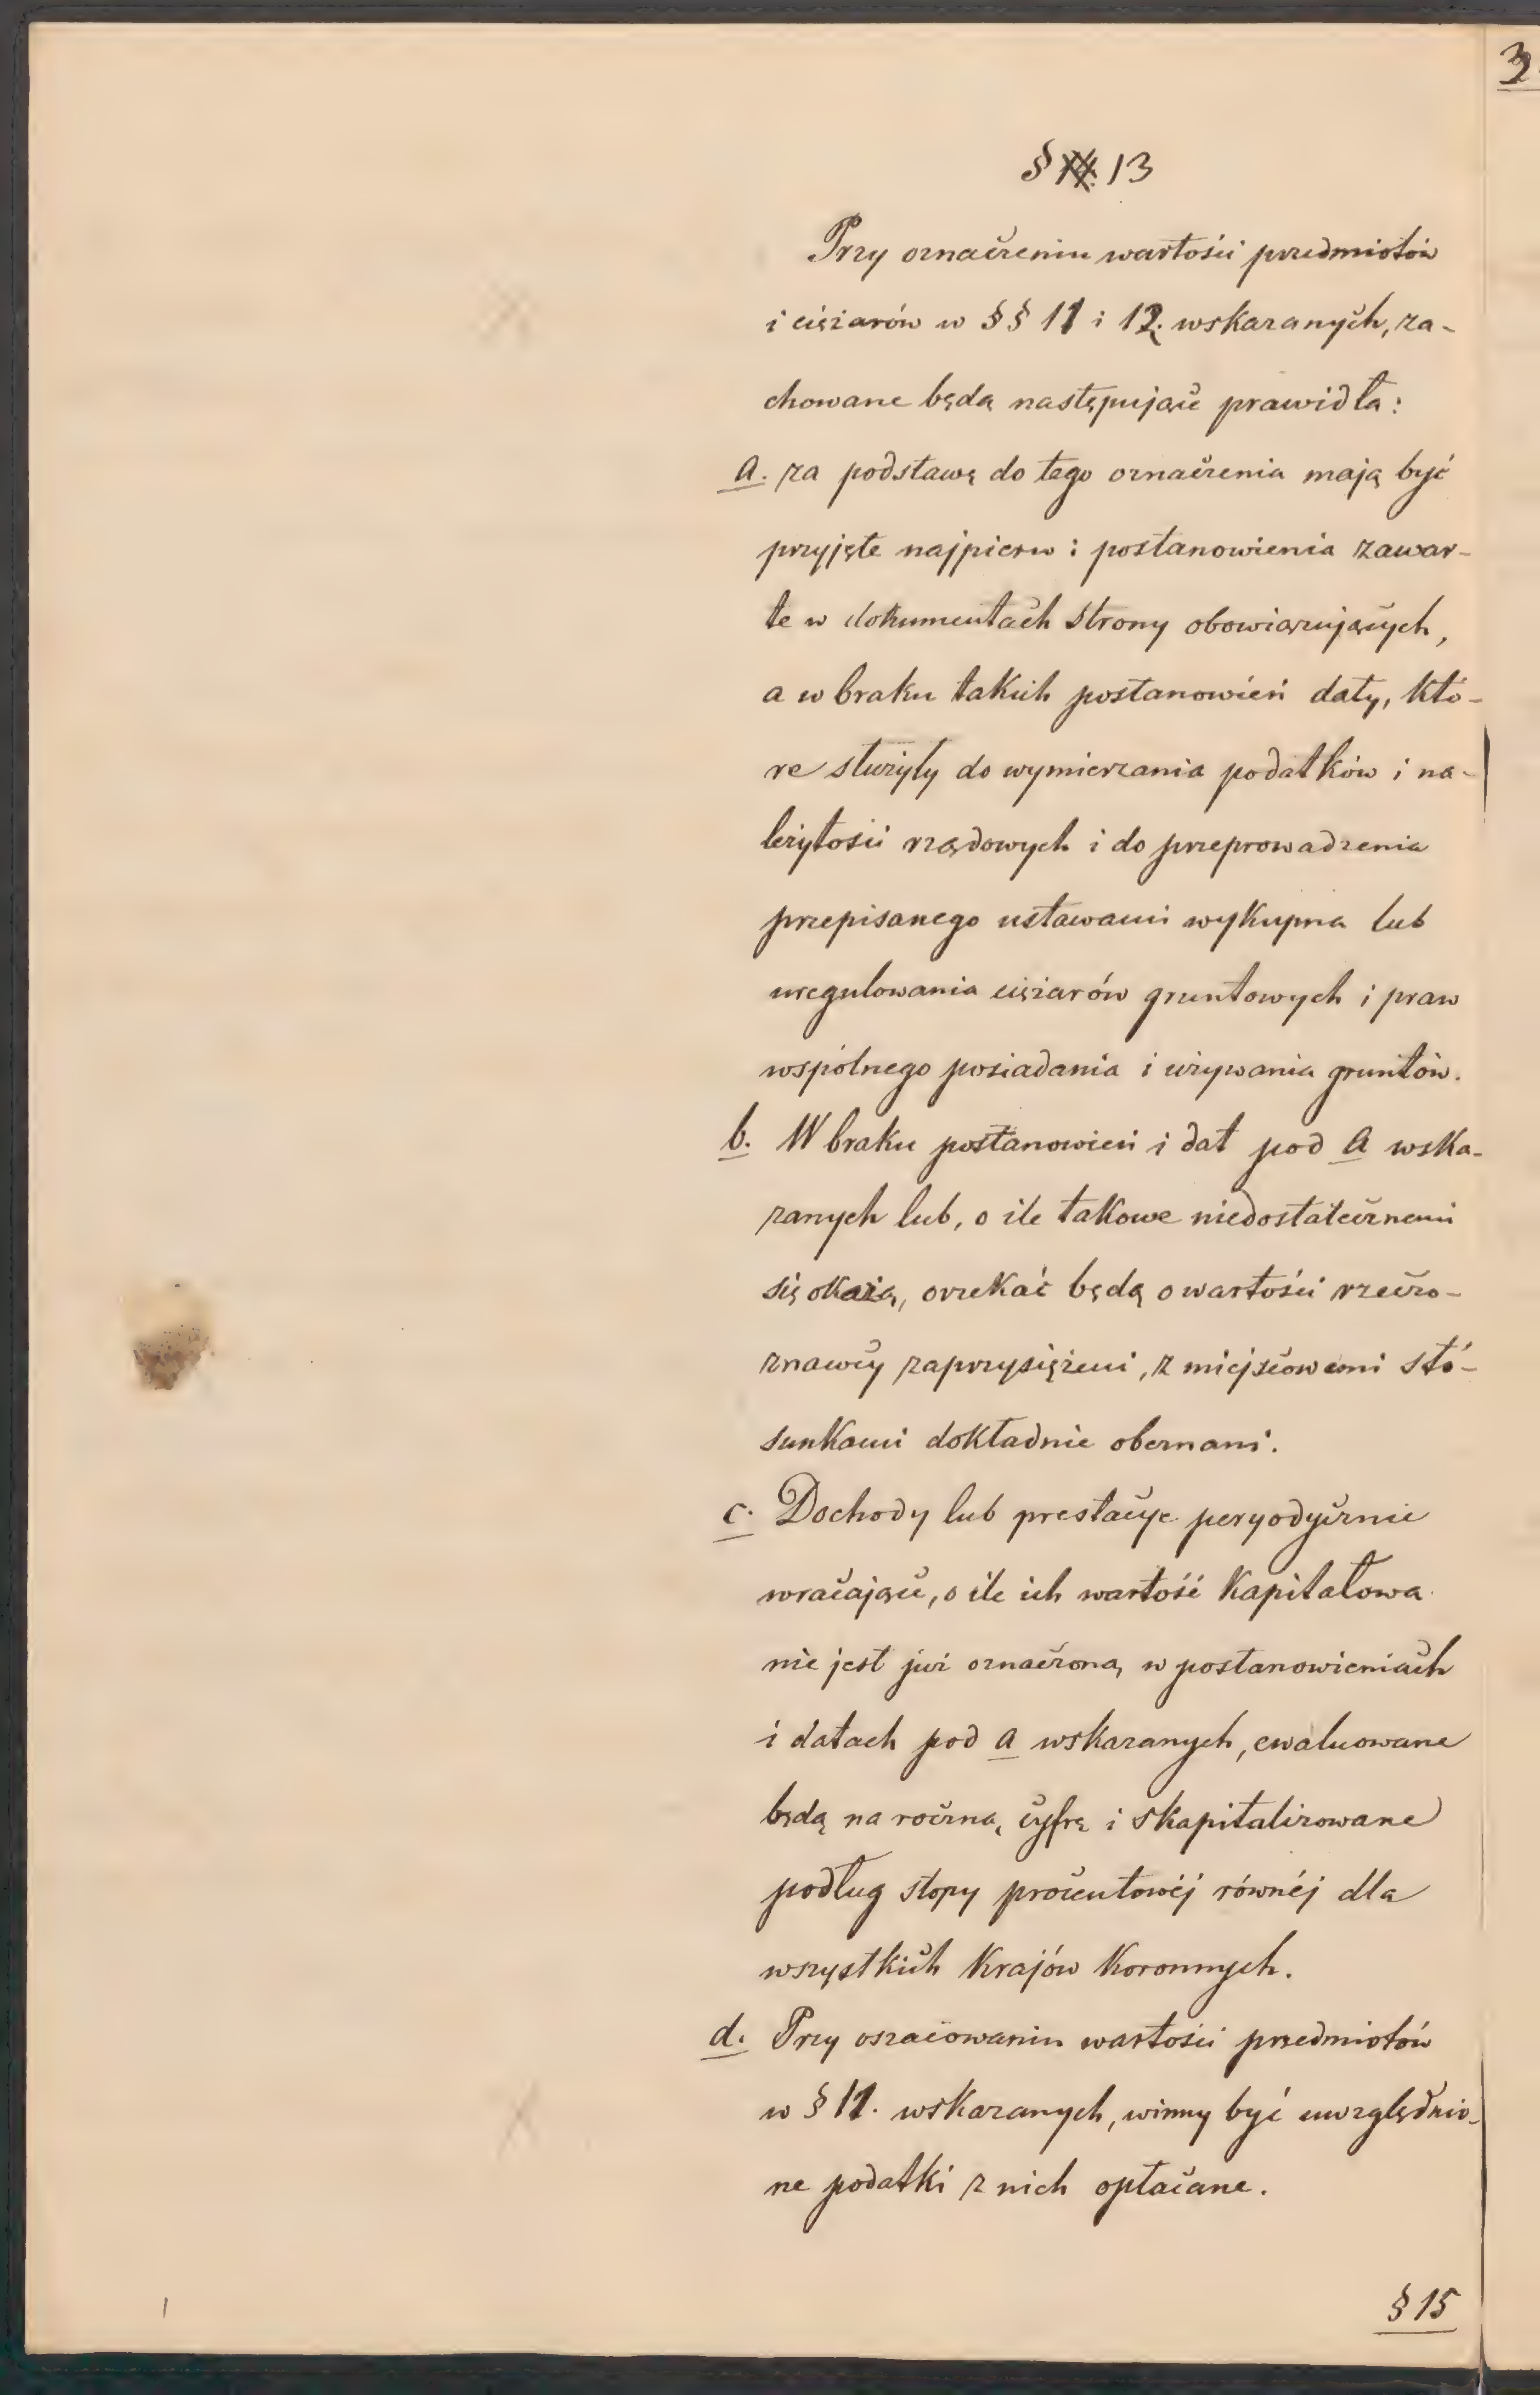 3
§ 13
Przy oznaczeniu wartości przedmiotów
i ciężarów w §§ 11 i 12. wskazanych, za-
chowane będą następujące prawidła:
a. za podstawę do tego oznaczenia mają być
przyjęte najpierw: postanowienia zawar-
te w dokumentach strony obowiązujących,
a w braku takich postanowień daty, któ-
re służyły do wymierzania podatków i na-
leżytości rządowych i do przeprowadzenia
przepisanego ustawami wykupna lub
uregulowania ciężarów gruntowych i praw
wspólnego posiadania i używania gruntów.
b. W braku postanowień i dat pod a wska-
zanych lub, o ile takowe niedostatecznemi
się okażą, orzekać będą o wartości rzeczo-
znawcy zaprzysiężeni, z miejscowemi stó-
sunkami dokładnie obeznani.
c. Dochody lub prestacye peryodycznie
wracające, o ile ich wartość kapitałowa
nie jest już oznaczoną w postanowieniach
i datach pod a wskazanych, ewaluowane
będą na roczną cyfrę i skapitalizowane
podług stopy procentowéj równéj dla
wszystkich Krajów Koronnych.
d. Przy oszacowaniu wartości przedmiotów
w § 11. wskazanych, winny być uwzględnio-
ne podatki z nich opłacane.
§ 15